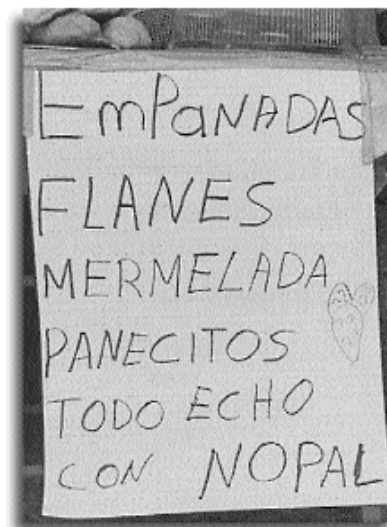 EmPaNADAS
FLANES
MERMELADA
PANECITOS
TODO ECHO
CON NOPAL